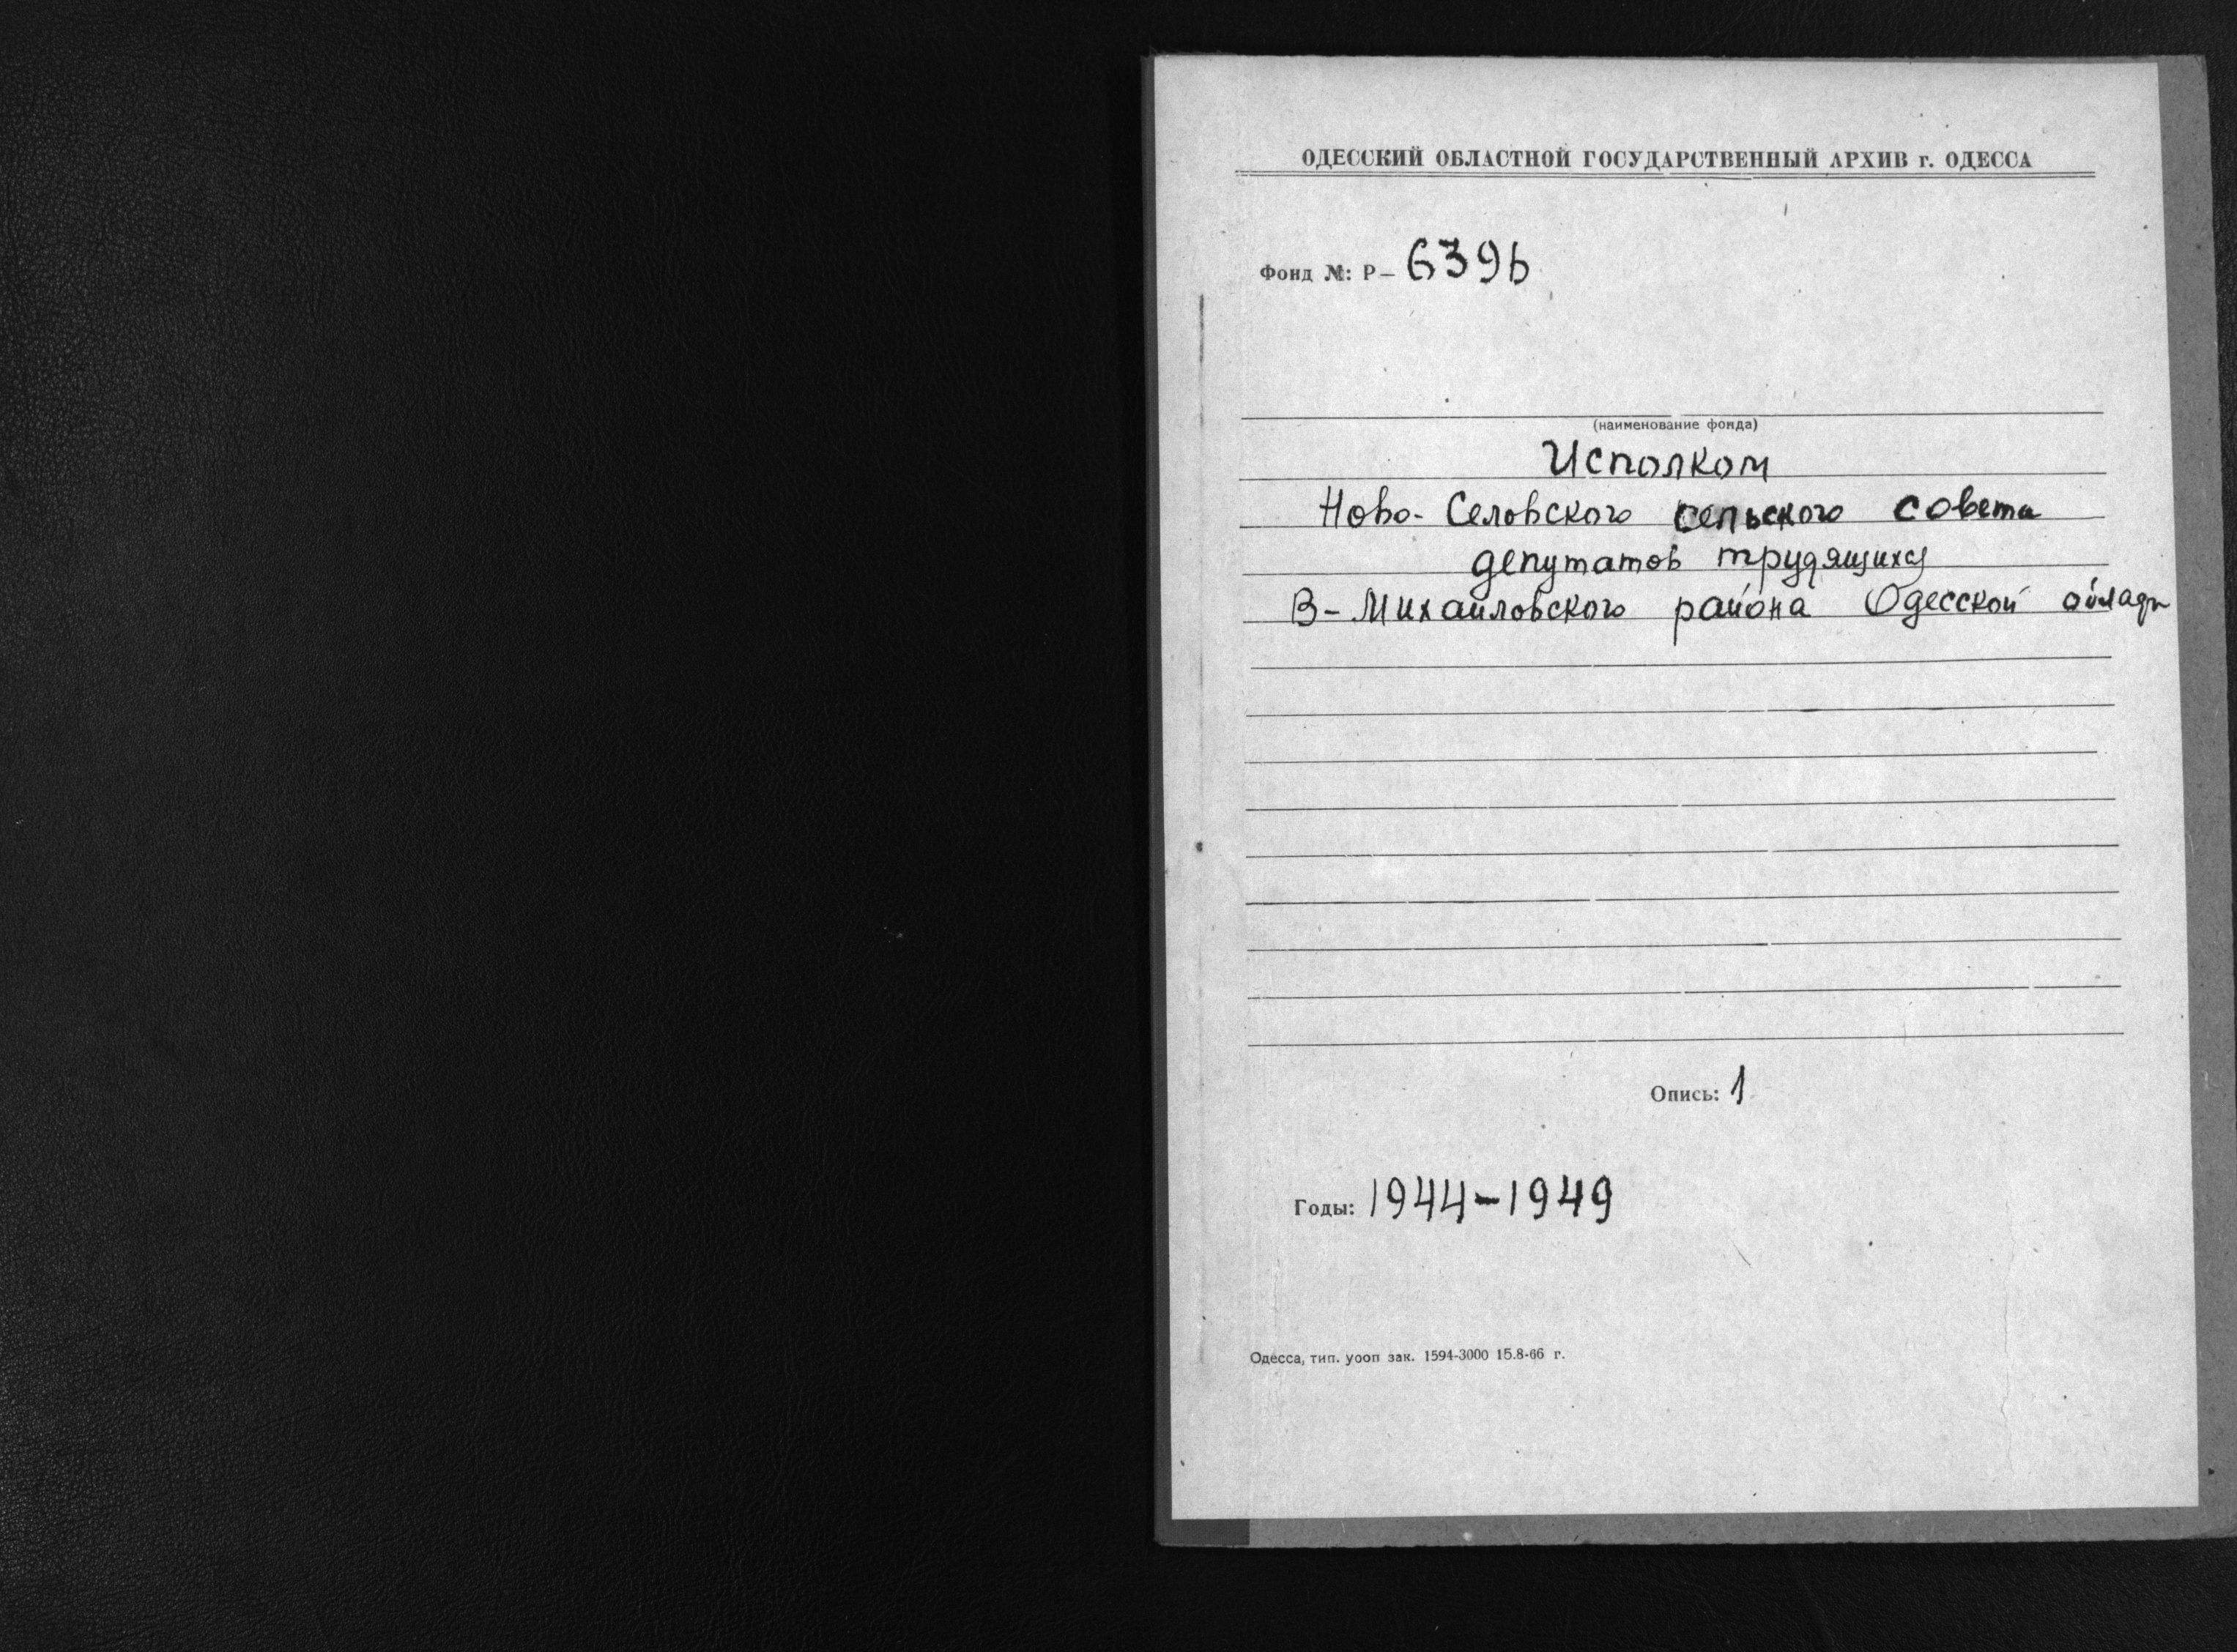 ОДЕССКИЙ ОБЛАСТНОЙ ГОСУДАРСТВЕННЫЙ АРХИВ г. ОДЕССА
Фонд №: Р— 6396
(наименование фонда)
Исполком
Ново- Селовского сельского совета
депутатов трудящихся
В-Михайловского района Одесской
Опись: 1
Годы: 1944-1949
Одесса, тип. уооп зак. 1594-3000 15.8-66 г.